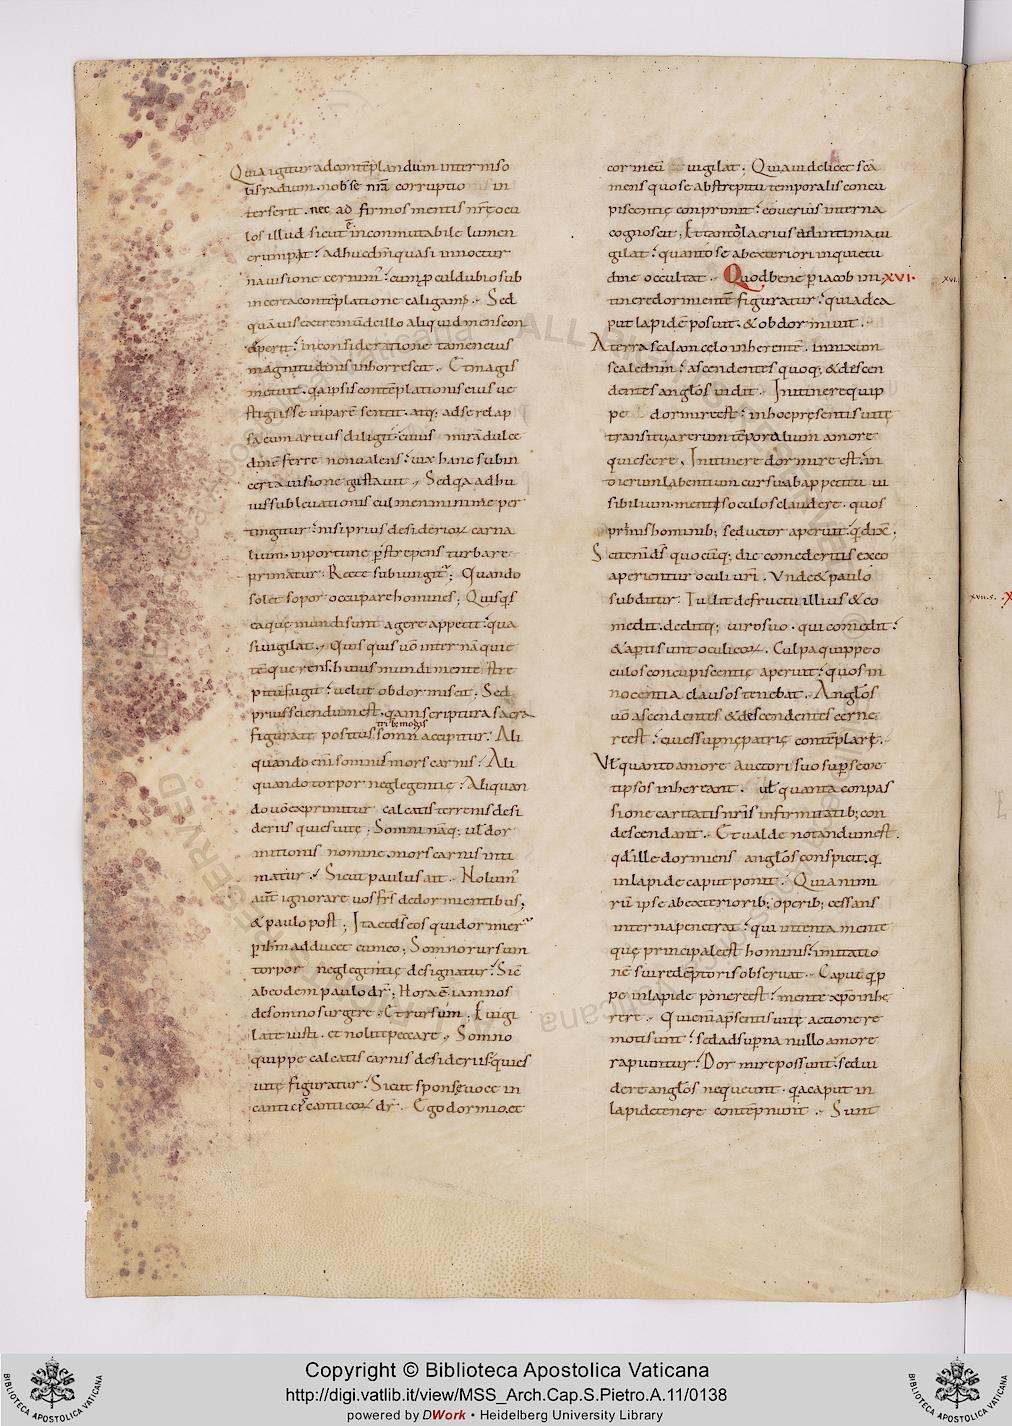 Quia igitur ad contēplandum intermiso
lis radium. nob se nr̄a corruptio in
terserit. nec ad firmos mentis nr̄ę ocu
los illud sicut ē incommutabile lumen
erumpat; adhuc dm̄ quasi in noctur
na uisione cernim;
in certa contēplatione caligam;. Sed
quāuis extremū de illo aliquid mens con
ceperit; in consideratione tamen eius
magnitudinis inhorrescit. Et magis
metuit. qa ipsis contēplationis eius ue
stigiis se inparē sentit. atq; ad se relap
sa eum artius diligit; cuius mirā dulce
dinē ferre non ualens; uix hanc sub in
certa uisione gustauit. Sed qa adhu
ius subleuationis culmen minime per
tingitur; nisi prius desiderioꝝ carna
lium. inportune p̄strepens turba re
primatur. Recte subiungit; Quando
solet sopor occupare homines; Quisq̄s
ea que mundi sunt agere appetit; qua
si uigilat. Quis quis uō internā quie
tē querens. huius mundi mente stre
pitū fugit; uelut obdormiscit. Sed
prius sciendum est. qa in scriptura sacra
trib; modis
figurate positus somn; accipitur. Ali
quando eni somnus; mors carnis; Ali
quando torpor neglegentię; Aliquan
do uō exprimitur calcatis terrenis desi
deriis quies uitę; Somni nāq; ul̄ dor
mitionis nomine. mors carnis inti
matur; Sicut paulus ait. Nolum;
aūt ignorare uos fr̄s de dormientibus;
& paulo post; Ita et ds̄ eos qui dormier̄
p ih̄m adducet cum eo; Somno rursum
torpor neglegentię designatur; Sic̄
ab eodem paulo dr̄; Hora ē. iam nos
de somno surgere. Et rursum; Euigi
late iusti. et nolite peccare. Somno
quippe calcatis carnis desideriis; quies
uitę figuratur; Sicut sponsę uoce in
canticis canticoꝝ dr̄. Ego dormio. et
cor meū uigilat; Quia uidelicet sc̄a
mens quo se ab strepitu temporalis concu
piscentię conprimit; eo uerius interna
cognoscit; Et tanto; alacrius ad intima ui
gilat; quanto se ab exteriori inquietu
dine occultat. Quod bene p̄ iacob in i .XVI.
tinere dormientē figuratur; qui ad ca
put lapidē posuit. & obdormiuit.
A terra scalam cęlo inherentē. innixum
scalę dn̄m; ascendentes quoq; & descen
dentes angl̄os uidit. In itinere quip
pe dormire est; in hoc pręsentis uitę
transitu a rerum tēporalium amore
quiescere. In itinere dormire est; in
dierum labentium cursu ab appetitu ui
sibilium. mentis oculos claudere. quos
primis hominib; seductor aperuit. q̄ dix̄.
Scit enī ds̄ quo cūq; die comederitis ex eo
aperientur oculi ur̄i. Unde & paulo
subditur. Tulit de fructu illius & co
medit. deditq; uiro suo. qui comedit;
& apti sunt oculi eoꝝ. Culpa quippe o
culos concupiscentię aperuit; quos in
nocentia clausos tenebat. Angl̄os
uō ascendentes & descendentes cerne
re est; ciues sup̄nę patrię contēplari.
Ul̄ quanto amore auctori suo sup̄ seme
tipsos inhereant. ul̄ quanta conpas
sione caritatis nr̄is infirmitatib; con
descendant. Et ualde notandum est.
qd̄ ille dormiens angl̄os conspicit. q̄
in lapide caput ponit; Quia nimi
rū ipse ab exteriorib; operib; cessans
interna penetrat; qui intenta mente
quę principale est hominis; imitatio
nē sui redēptoris obseruat. Caput q̄p
pe in lapide ponere est; mente xp̄o inhe
rere. Qui enī a p̄sentis uitę actione re
moti sunt; sed ad sup̄na nullo amore
rapiuntur; Dormire possunt; sed ui
dere angl̄os nequeunt. qa caput in
lapide tenere contēpnunt. Sunt
Copyright © Biblioteca Apostolica Vaticana
http://digi.vatlib.it/view/MSS_Arch.Cap.S.Pietro.A.11/0138
powered by DWork • Heidelberg University Library